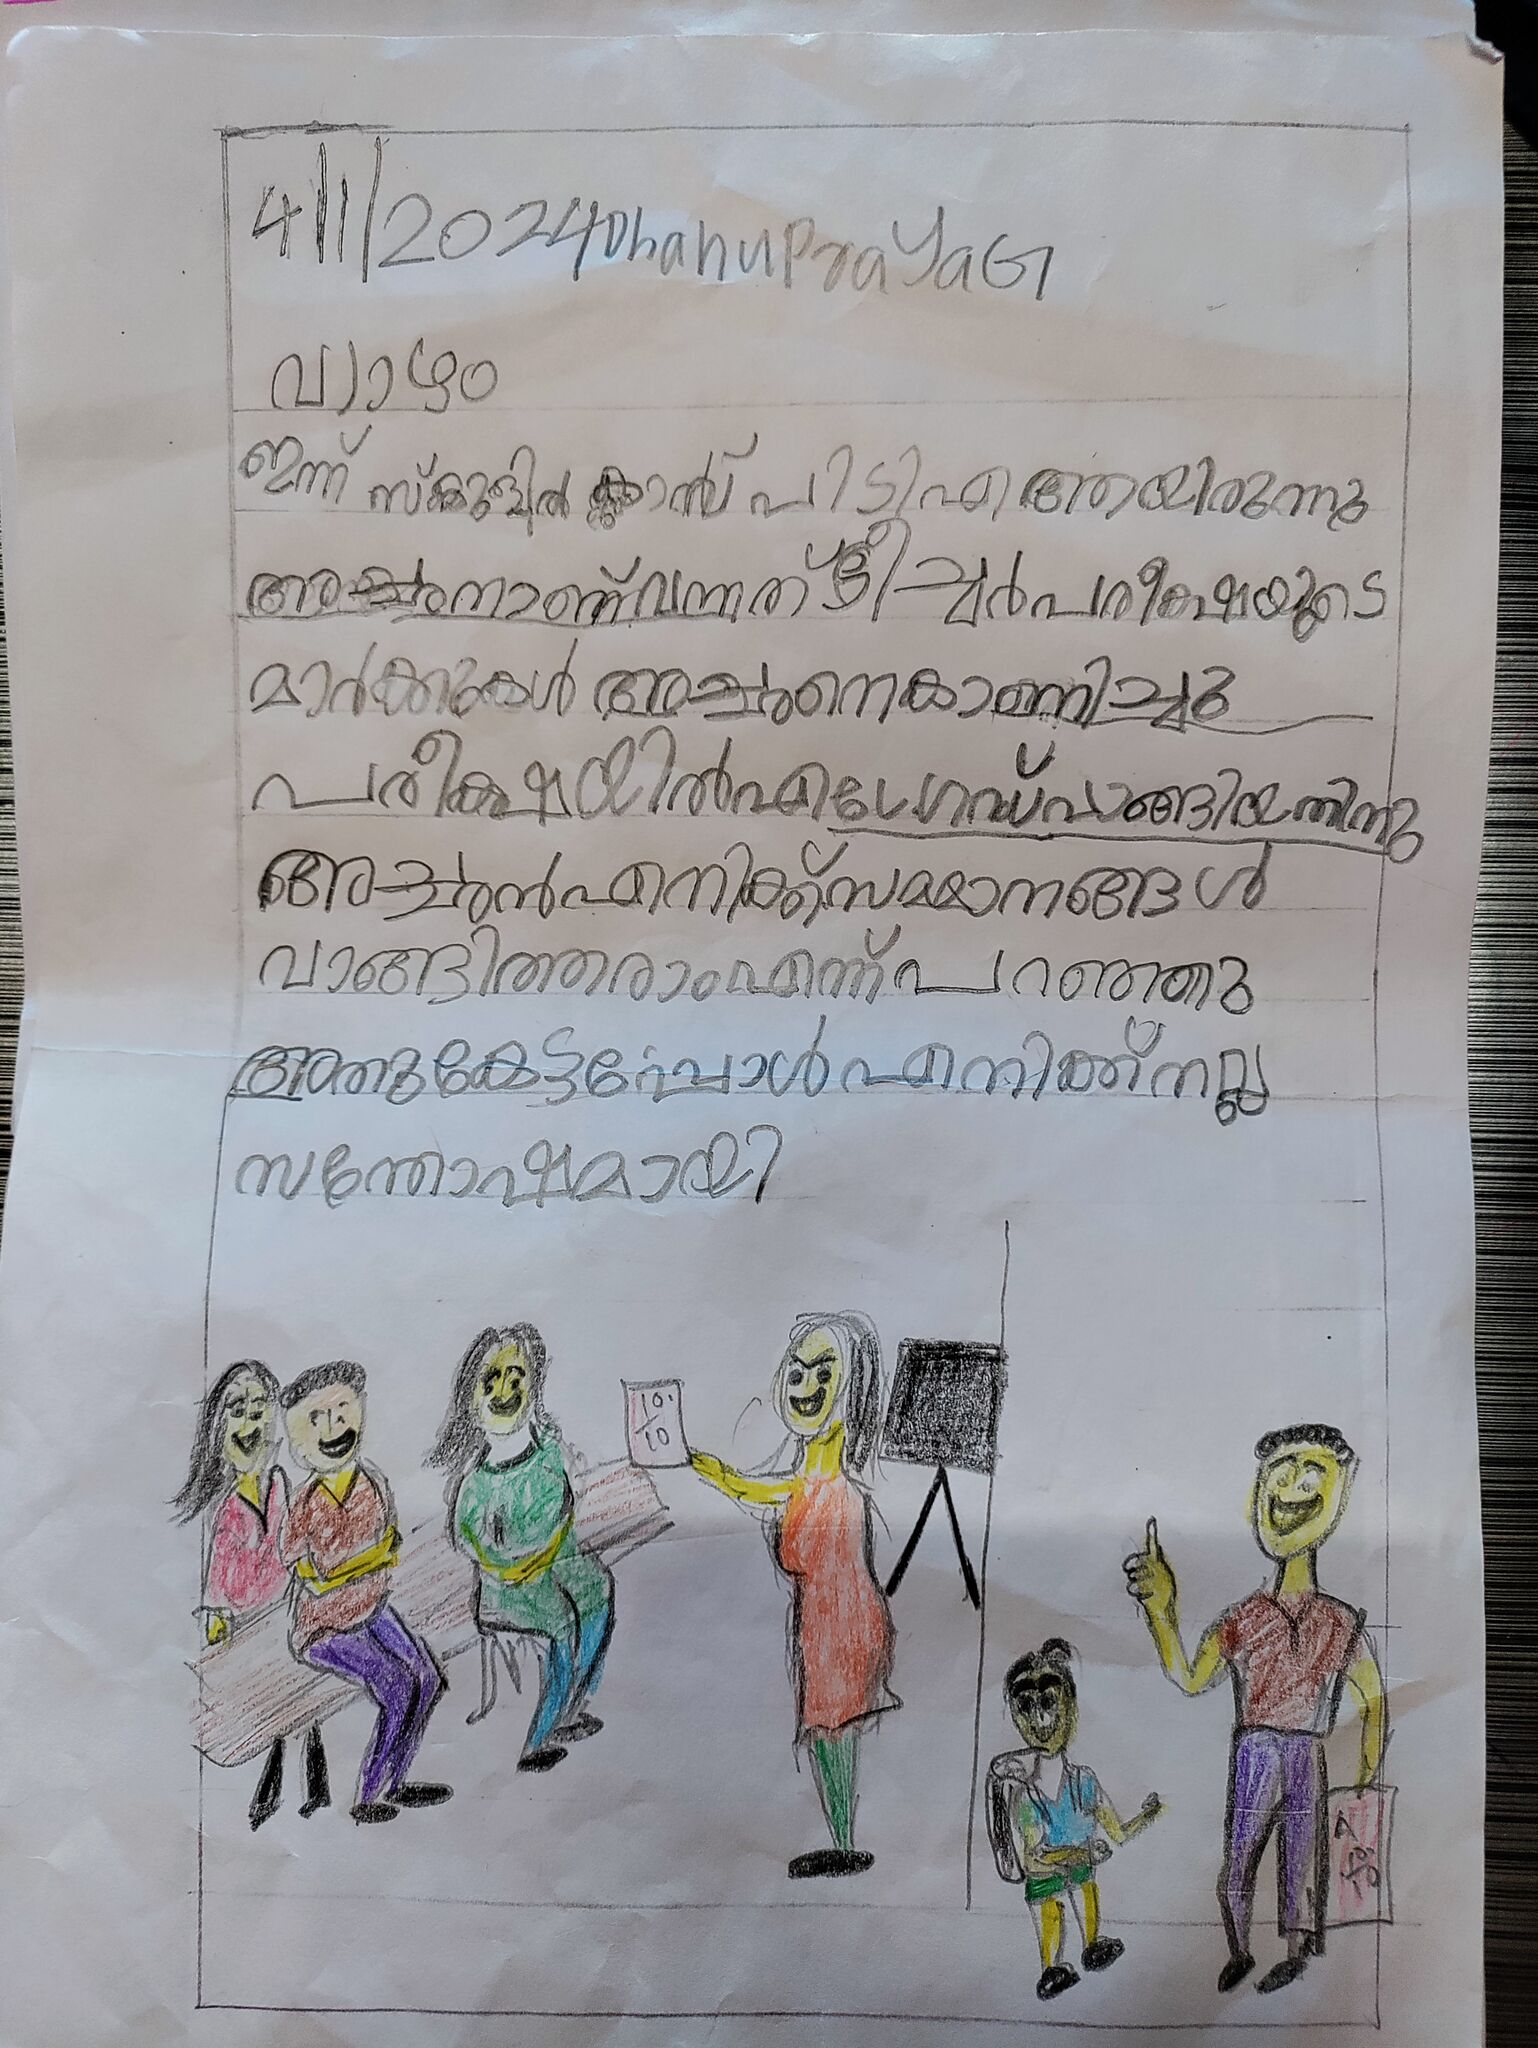 4/1/2024 Dhanu PraYaG
വ്യാഴം
ഇന്ന് സ്കൂളിൽ ക്ലാസ് പി ടി എ ആയിരുന്നു
അച്ഛനാണ് വന്നത് ടീച്ചർ പരീക്ഷയുടെ
മാർക്കുകൾ അച്ഛനെ കാണിച്ചു
പരീക്ഷയിൽ എ ഗ്രേഡ് വാങ്ങിയതിനു
അച്ഛൻ എനിക്ക് സമ്മാനങ്ങൾ
വാങ്ങിത്തരാം എന്ന് പറഞ്ഞു
അതു കേട്ടപ്പോൾ എനിക്ക് നല്ല
സന്തോഷമായി
10
10
A
10
10